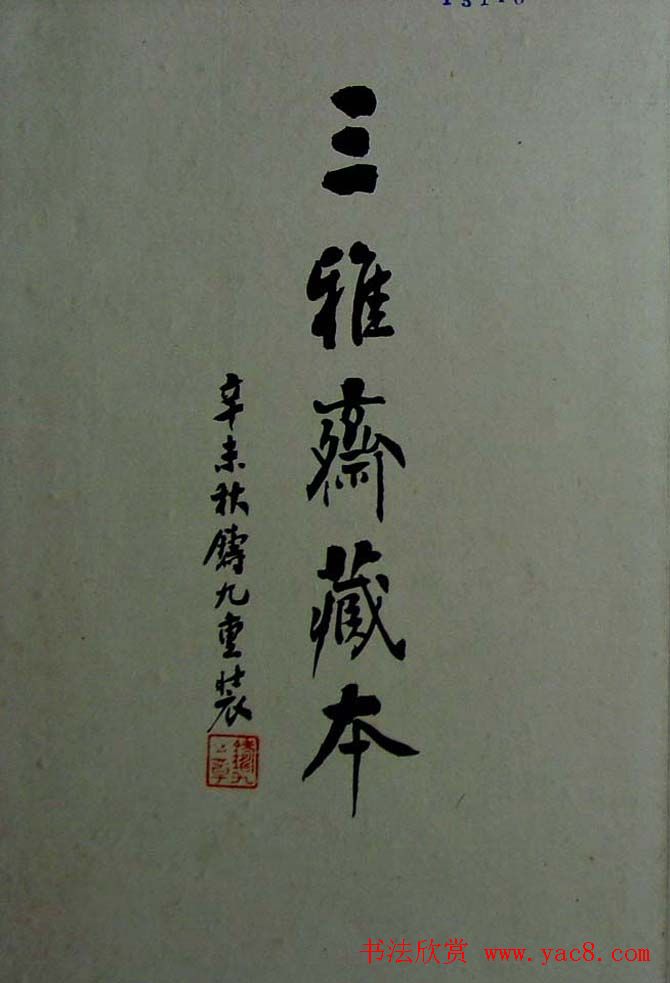 三雅齋藏本
辛未秋鑄九重裝
书法欣赏 www.yac8.com